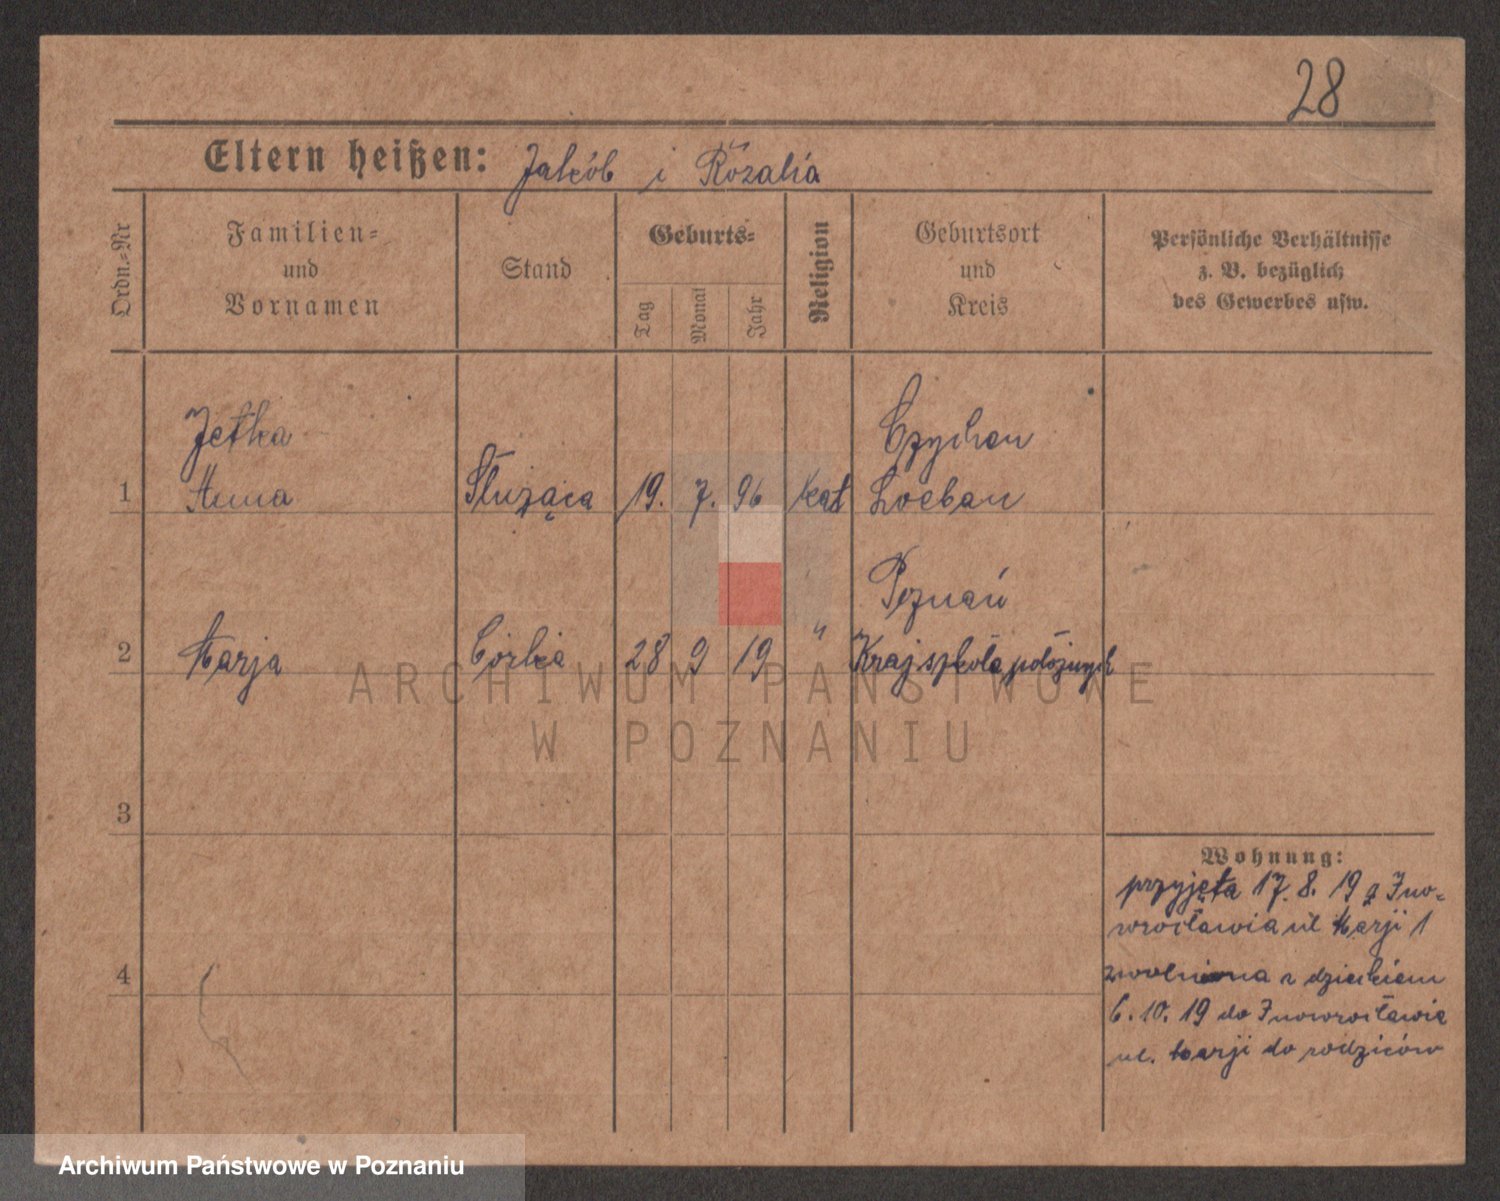 28
Eltern heißen: Jakób i Rózalia
Ordn.-Nr
Familien-
und
Vornamen
Stand
Geburts-
Tag
Monat
Jahr
Religion
Geburtsort
und
Kreis
Persönliche Verhältnisse
z. B. bezüglich
des Gewerbes usw.
Jetka
Czychen
1 Anna Służąca 19. 7. 96 kat Loebau
Poznań
2 Marja Córka 28 9 19 " Kraj szkoła położnych
ARCHIWUM PAŃSTWOWE
W POZNANIU
3
Wohnung:
przyjęta 17. 8. 19 z Ino-
wrocławia ul Marji 1
4
zwolniona z dzieckiem
6. 10. 19 do Inowrocławia
ul. Marji do rodziców
Archiwum Państwowe w Poznaniu